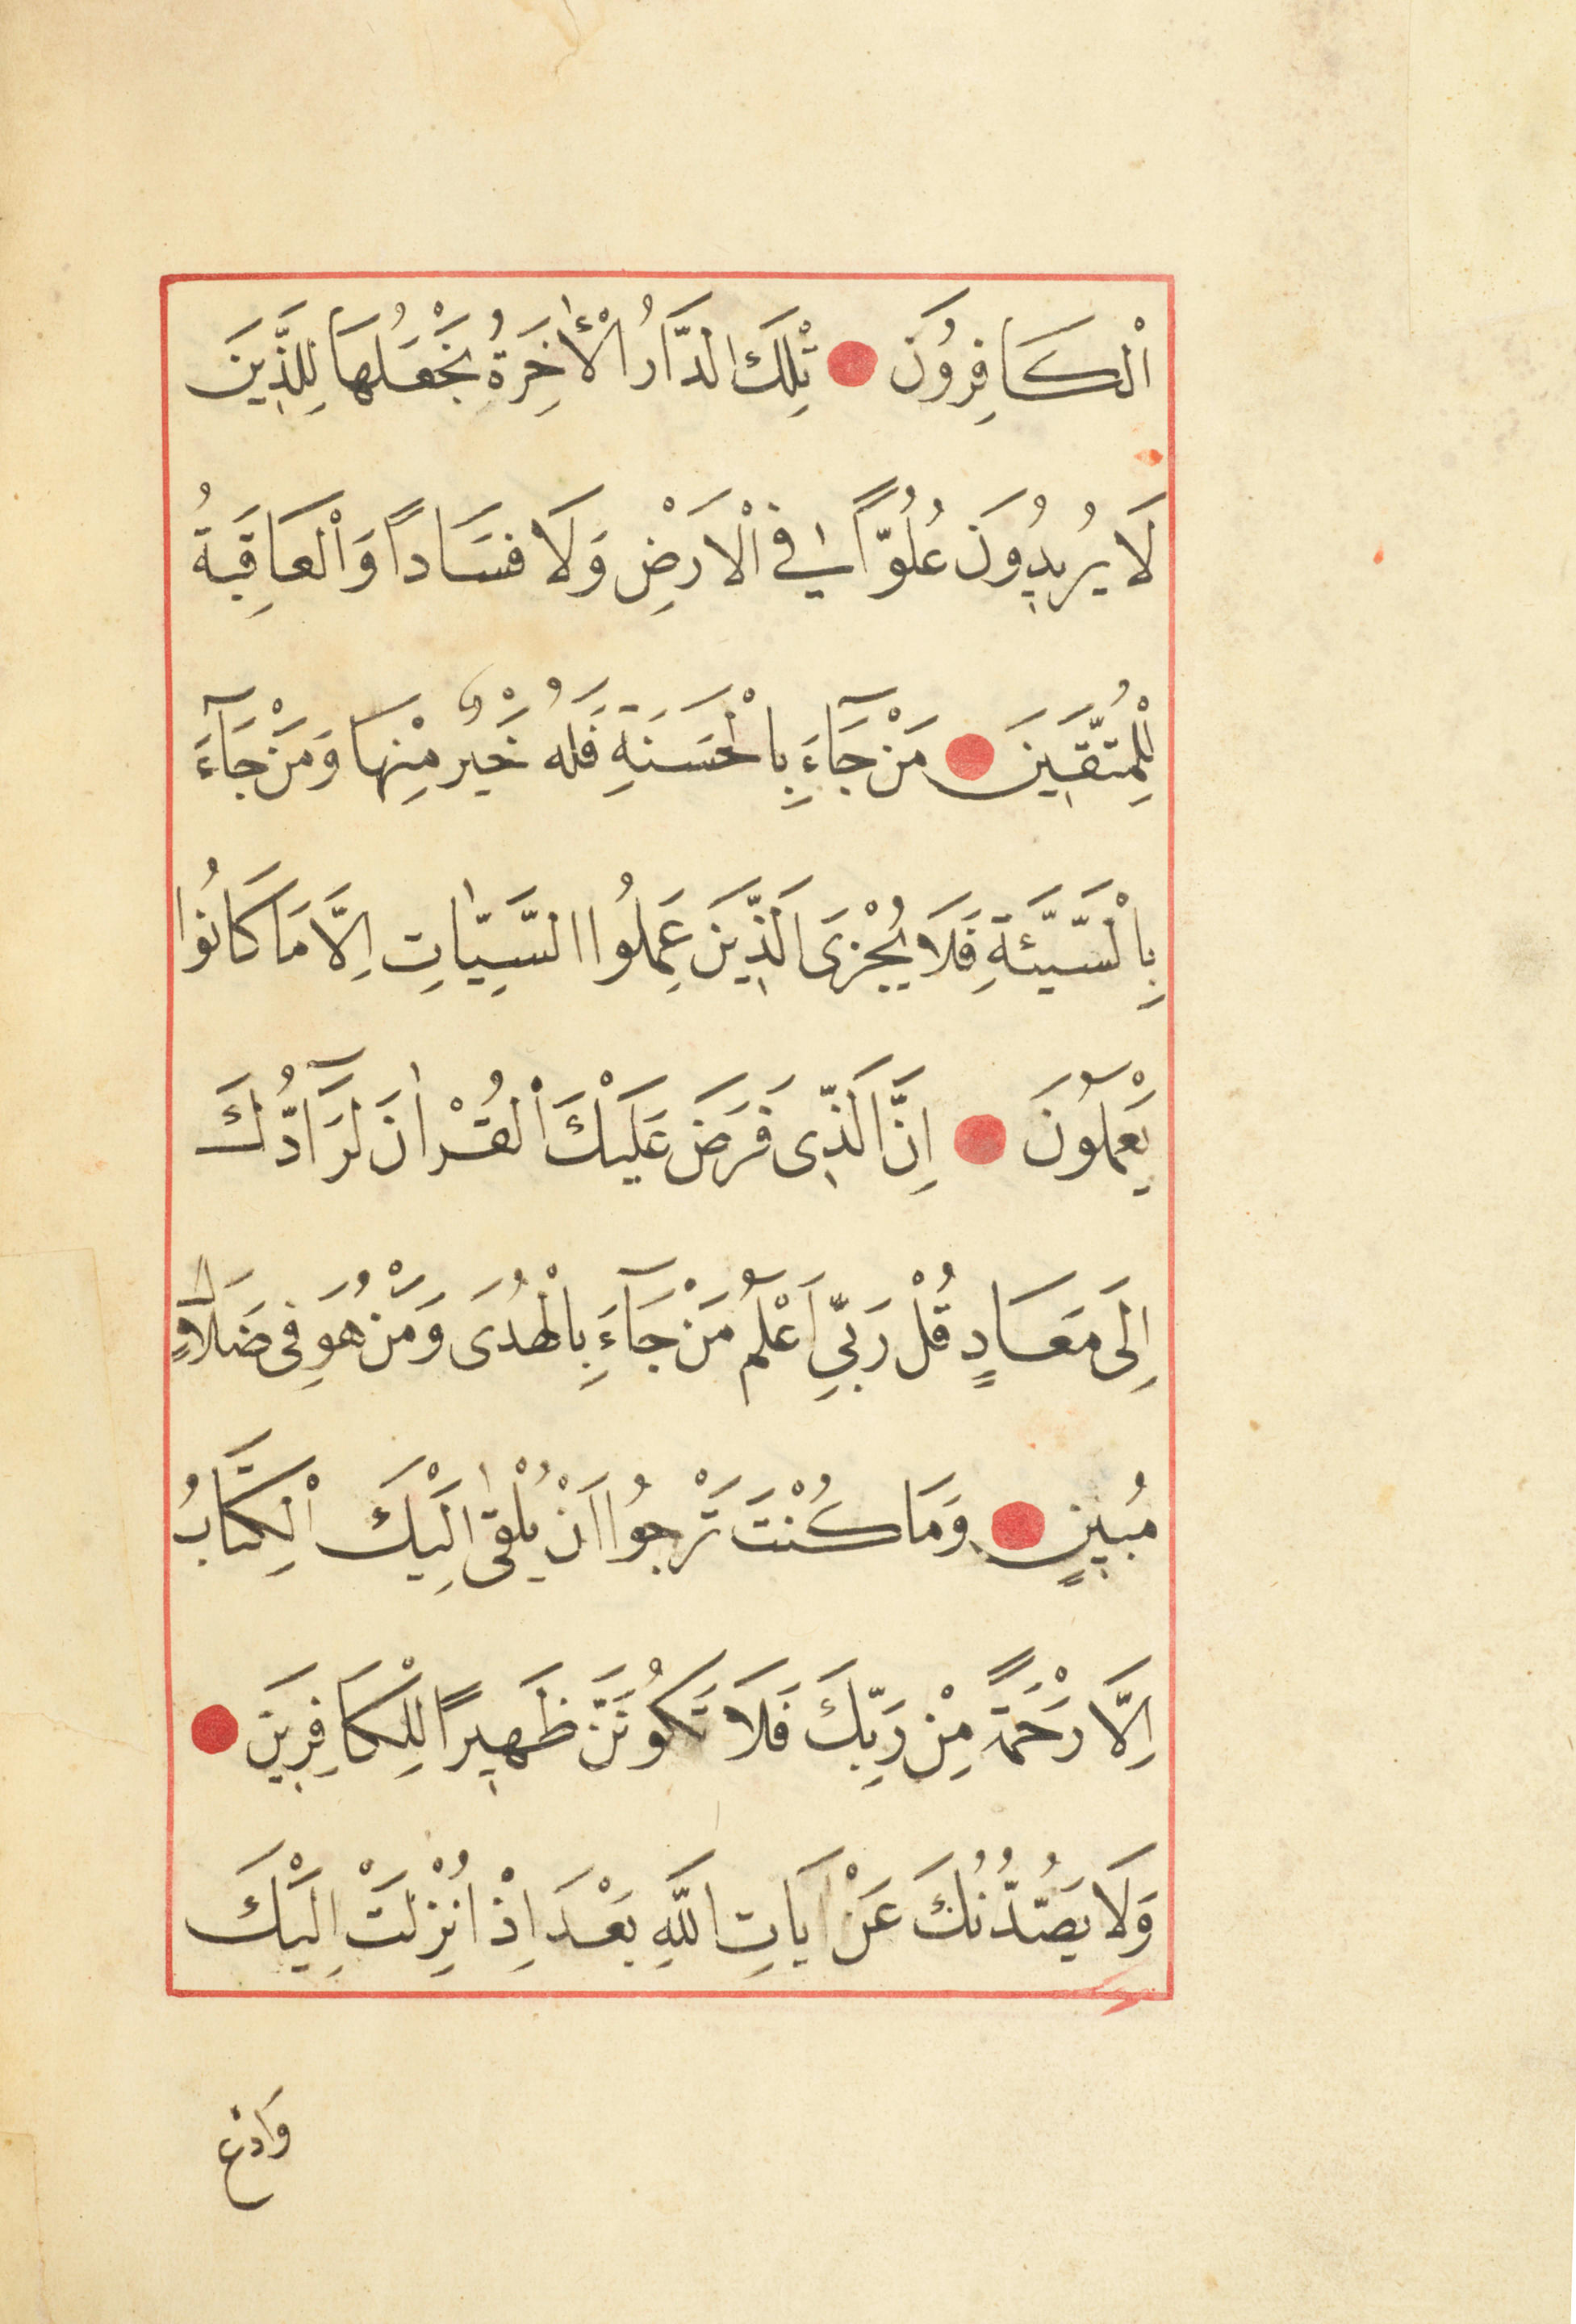 اْلكَافِرُونَ تِلْكَ الدَّارُ الْأٰخِرَةُ نَجْعَلُهَا لِلَّذِينَ
لَا يُرِيدُونَ عُلُوًّا فِي اْلاَرْضِ وَلَا فَسَادًا وَاْلعَاقِبَةُ
لِلْمُتَّقِينَ مَنْ جَآءَ بِالْحَسَنَةِ فَلَهُ خَيْرٌ مِنْهَا وَمَنْ جَآءَ
بِالْسَّيِّئَةِ فَلَا يُجْزَى الَّذِينَ عَمِلُوا السَّيِّاٰتِ اِلَّا مَا كَانُوا
يَعْمَلُونَ اِنَّ الَّذِى فَرَضَ عَلَيْكَ اْلقُرْاٰنَ لَرَآدُّكَ
اِلَى مَعَادٍ قُلْ رَبِّي اَعْلَمُ مَنْ جَآءَ بِالْهُدَى وَمَنْ هُوَ فِى ضَلَالٍ
مُبِينٍ وَمَا كُنْتَ تَرْجُوا اَنْ يُلْقٰى اِلَيْكَ اْلكِتَابُ
اِلَّا رَحْمَةً مِنْ رَبِّكَ فَلَا تَكُونَنَّ ظَهِيرًا لِلْكَافِرِينَ
وَلَا يَصُدُّنُكَ عَنْ اَيَاتِ اللَّهِ بَعْدَ اِذْ اُنْزِلَتْ اِلَيْكَ
وَادْع